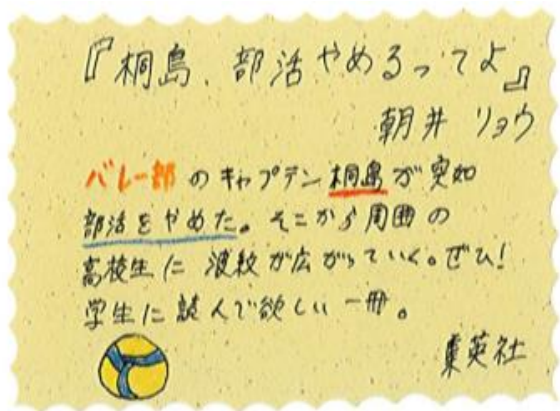 『桐島、部活やめるってよ』
朝井 リョウ
バレー部のキャプテン桐島が突如
部活をやめた。そこから周囲の
高校生に波紋が広がっていく。ぜひ!
学生に読んで欲しい一冊。
集英社